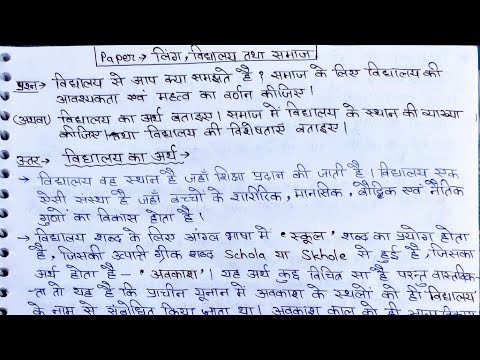 Paper → लिंग, विद्यालय तथा समाज
प्रश्न→ विद्यालय से आप क्या समझते है? समाज के लिए विद्यालय की
आवश्यकता एवं महत्व का वर्णन कीजिए।
(अथवा) विद्यालय का अर्थ बताइए। समाज में विद्यालय के स्थान की व्याख्या
कीजिए। तथा विद्यालय की विशेषताएं बताइए।
उत्तर→ विद्यालय का अर्थ →
→ विद्यालय वह स्थान है जहाँ शिक्षा प्रदान की जाती है। विद्यालय एक
ऐसी संस्था है जहाँ बच्चों के शारीरिक, मानसिक, बौद्धिक एवं नैतिक
गुणों का विकास होता है।
→ विद्यालय शब्द के लिए आंग्ल भाषा मे 'स्कूल' शब्द का प्रयोग होता
है, जिसकी उत्पत्ति ग्रीक शब्द Schola या Skhole से हुई है, जिसका
अर्थ होता है - 'अवकाश'। यह अर्थ कुछ विचित्र सा है परन्तु वास्तविक-
ता तो यह है कि प्राचीन यूनान में अवकाश के स्थलों को ही विद्यालय
के नाम से संबोधित किया जाता था। अवकाश काल को ही